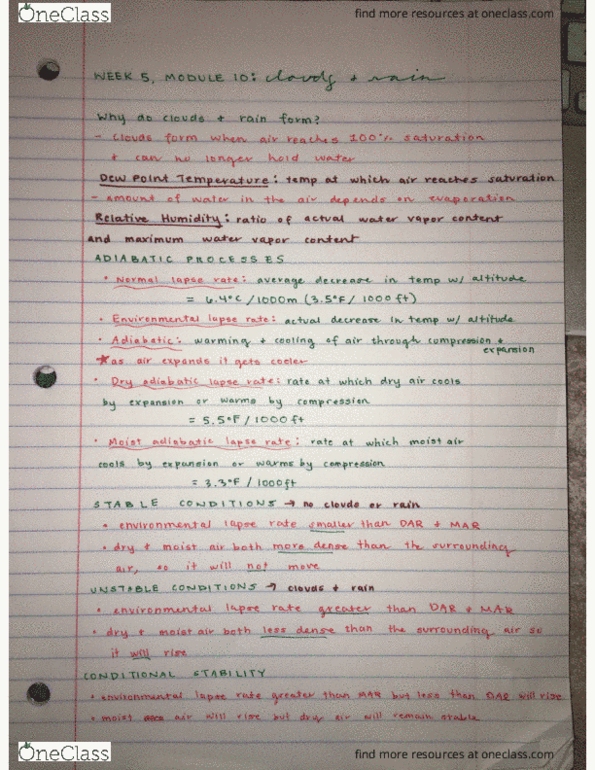 OneClass
find more resources at oneclass.com
WEEK 5, MODULE 10: clouds + rain
Why do clouds + rain form?
- clouds form when air reaches 100% saturation
+ can no longer hold water
Dew Point Temperature: temp at which air reaches saturation
- amount of water in the air depends on evaporation
Relative Humidity: ratio of actual water vapor content
and maximum water vapor content
ADIABATIC PROCESSES
• Normal lapse rate: average decrease in temp w/ altitude
= 6.4°C /1000m (3.5°F/ 1000 ft)
• Environmental lapse rate: actual decrease in temp w/ altitude
• Adiabatic: warming + cooling of air through compression +
expansion
*as air expands it gets cooler
• Dry adiabatic lapse rate: rate at which dry air cools
by expansion or warms by compression
= 5.5°F / 1000 ft
• Moist adiabatic lapse rate: rate at which moist air
cools by expansion or warms by compression
= 3.3°F / 1000ft
STABLE CONDITIONS → no clouds or rain
• environmental lapse rate smaller than DAR + MAR
• dry + moist air both more dense than the surrounding
air, so it will not move
UNSTABLE CONDITIONS → clouds + rain
• environmental lapse rate greater than DAR + MAR
• dry + moist air both less dense than the surrounding air so
it will rise
CONDITIONAL STABILITY
• environmental lapse rate greater than MAR but less than DAR will rise
• moist air will rise but dry air will remain stable
OneClass
find more resources at oneclass.com